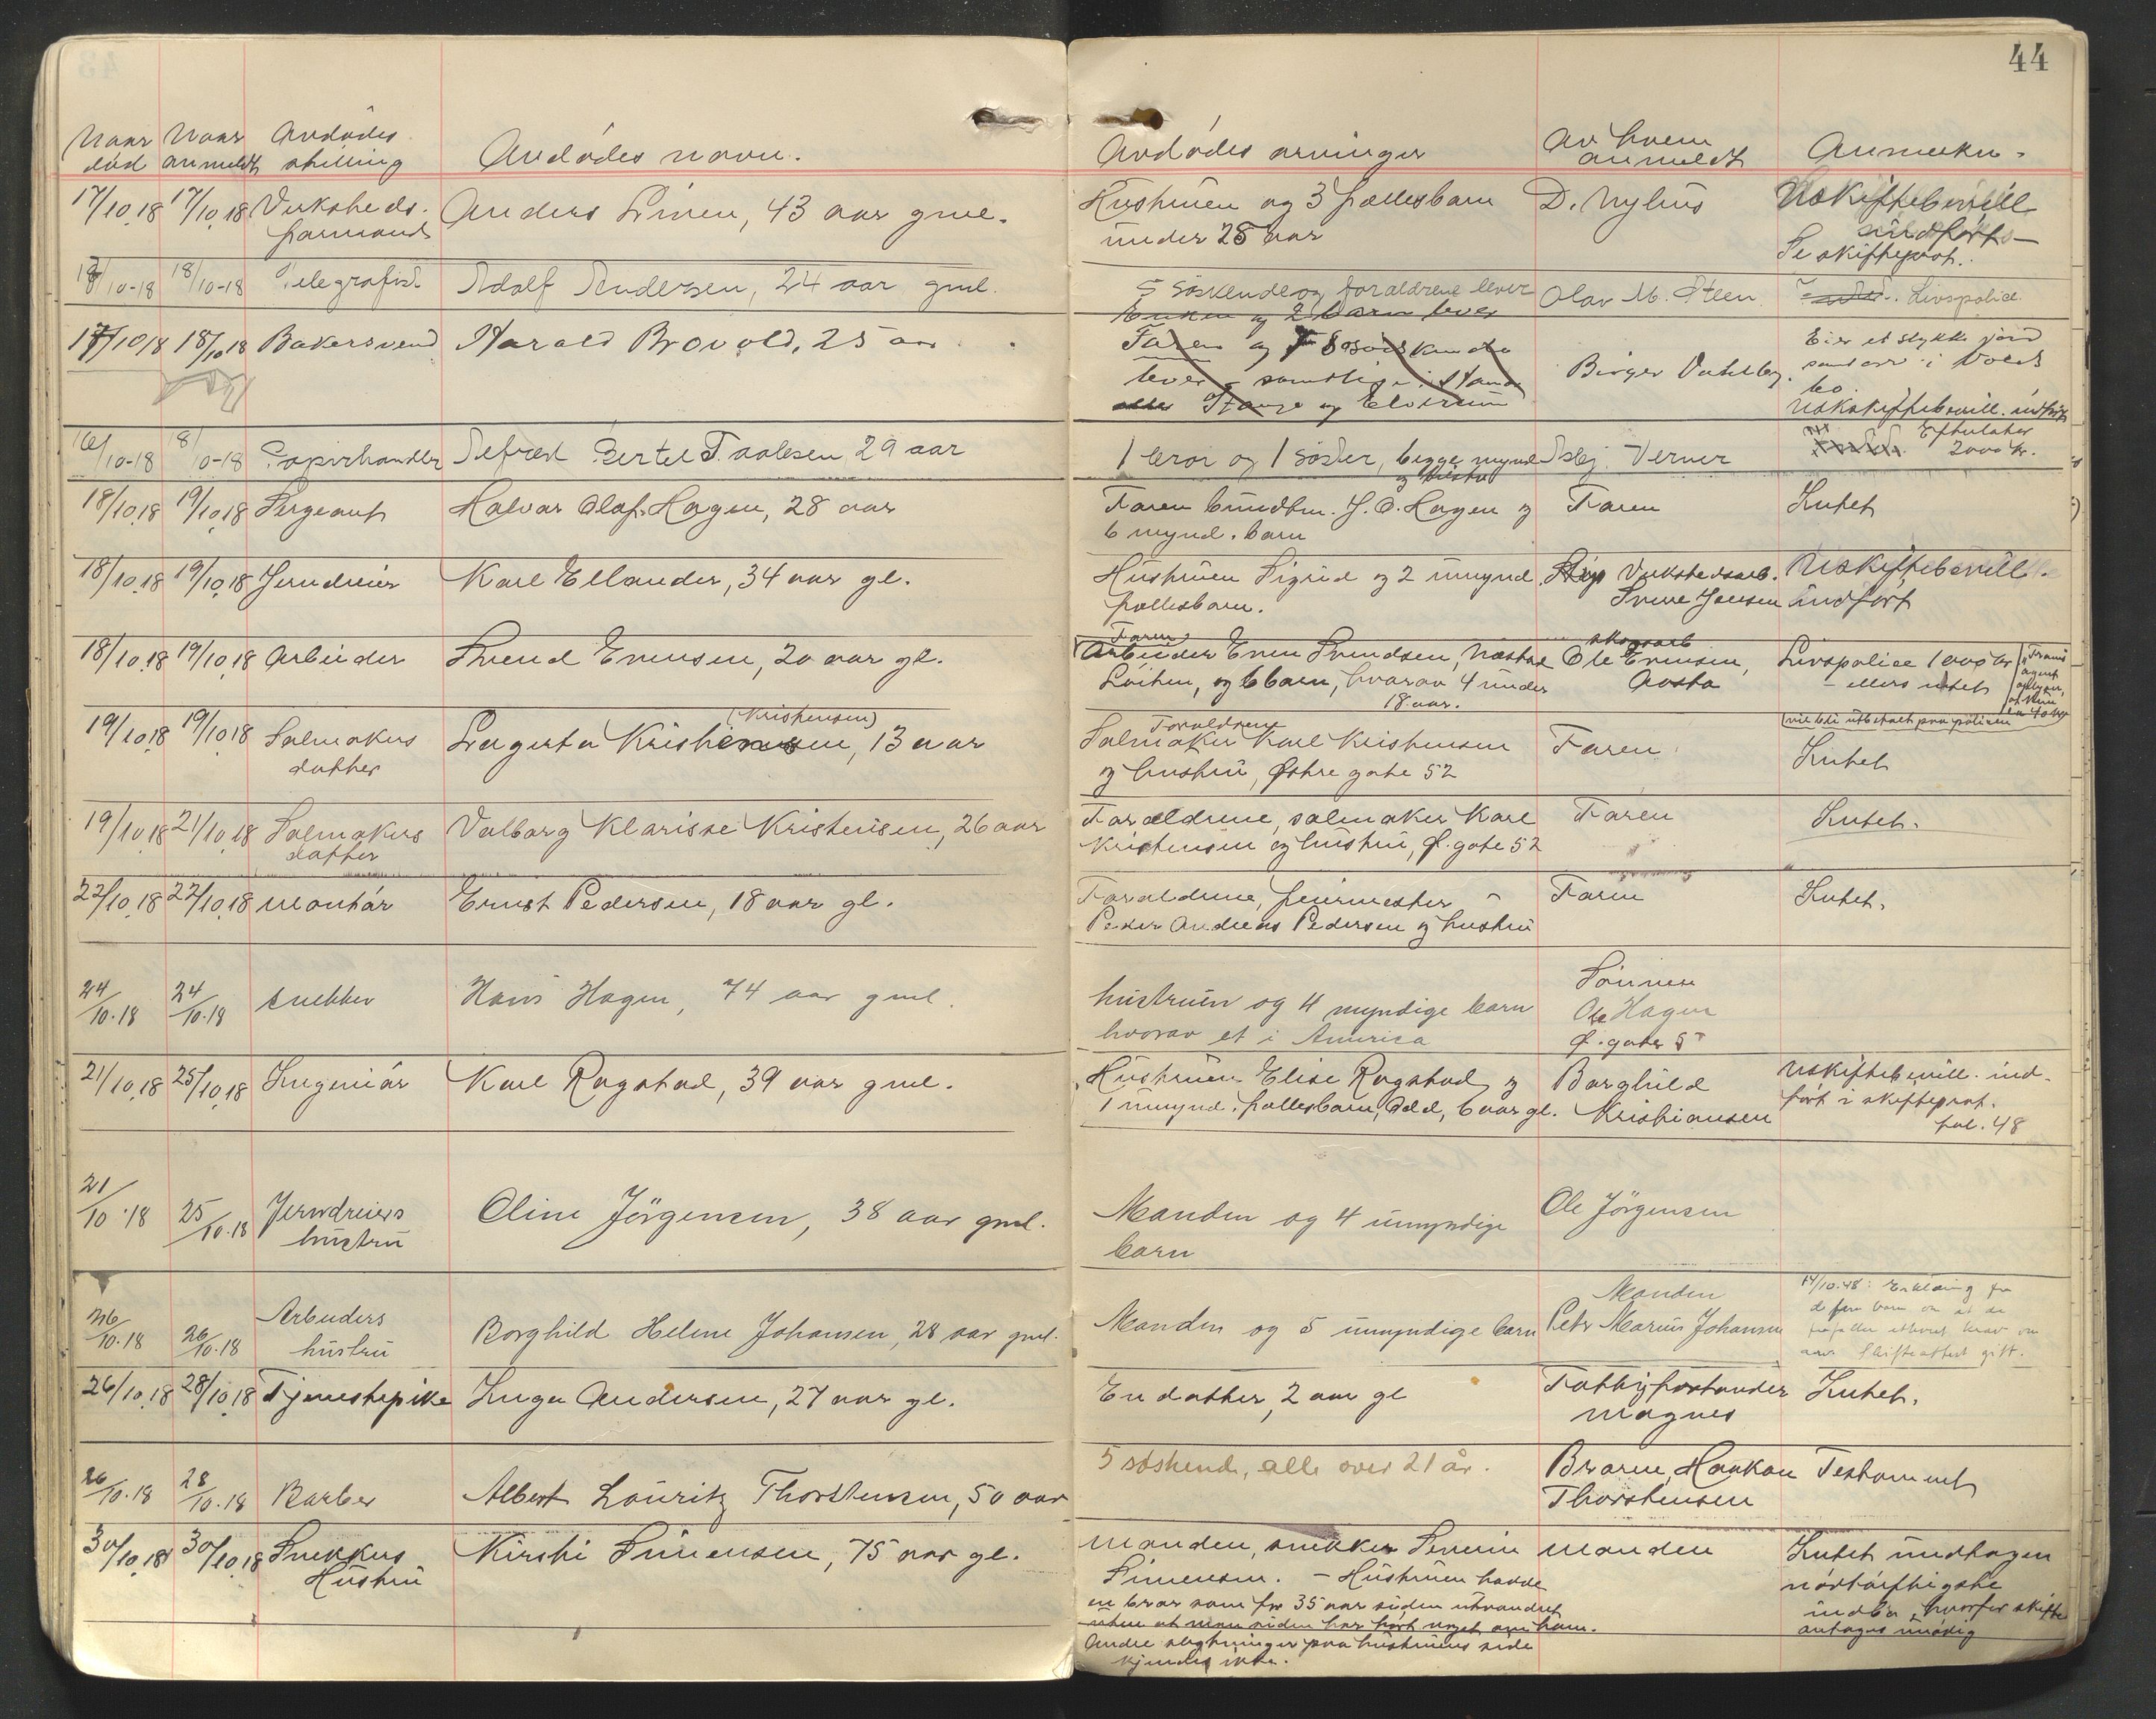 44
Naar død
Naar anmeldt
Avdødes stilling
Avdødes navn.
Avdødes arvinger
Av hvem anmeldt
Anmerkn.
17/10.18 17/10.18 Verksteds- Anders Linen, 43 aar gml. Hustruen og 3 fællesbarn D. Nyhus Uskiftebevill.
formand under 25 aar indført —
Se skifteprot.
18/10-18 Telegrafist Adolf Andersen, 24 aar gml. 5 søskende og forældrene lever Olav M. Steen Livspolice
Enken og 2 barn lever
17/10 18 18/10 18 Bakersvend Harald Brovold, 25 aar Faren og 8 søskende Birger Eier et stykke jord
lever - samtlige i Stange
Stange og Elverum
Uskiftebevill. indført
16/10-18 18/10-18 Papirhandler Alfred Bertel Paulsen 29 aar 1 bror og 1 søster, begge mynd Asbj. Verner Efterlater
2000 kr.
18/10.18 19/10.18 Sergeant Halvar Olaf Hagen, 28 aar Faren J. O. Hagen og Faren Intet
6 mynd. barn
18/10.18 19/10.18 Jerndreier Karl Ellander, 34 aar gl. Hustruen Sigrid og 2 umynd. Verkstedsarb. Uskiftebevill.
fællesbarn. Jensen indført
18/10.18 19/10.18 Arbeider Svend Evensen, 20 aar gl. Faren
Arbeider Even Svendsen, skogsarb
Løiten, og 6 barn, hvorav 4 under Ole Evensen, Livspolice 1000 kr
18 aar. - ellers intet
19/10.18 19/10.18 Salmakers Lagerta Kristensen, 13 aar (Kristensen) Forældrene
datter Salmaker Karl Kristensen Faren Intet
og hustru, Østre gate 52
19/10.18 21/10.18 Salmakers Valborg Klarisse Kristensen, 26 aar Forældrene, salmaker Karl Faren Intet.
datter Kristensen og hustru, Ø. gate 52
22/10.18 22/10.18 Montør Ernst Pedersen, 18 aar gl. Forældrene, Faren Intet.
Peder Andreas Pedersen og hustru
24/10.18 24/10.18 Snekker Hans Hagen, 74 aar gml. hustruen og 4 myndige barn Sønnen
hvorav et i America Ole Hagen
Ø. gate 5
21/10.18 25/10.18 Ingeniør Karl Rogstad, 39 aar gml. Hustruen Elise Rogstad og Borghild Uskiftebevill. ind-
1 umynd. fællesbarn, Odd, 6 aar gl. Kristiansen ført i skifteprot.
fol. 48
21/10.18 25/10.18 Jerndreiers Oline Jörgensen, 38 aar gml. Manden og 4 umyndige Ole Jörgensen
hustru barn
26/10.18 26/10.18 Arbeiders Borghild Helene Johansen, 28 aar gml. Manden og 5 umyndige barn Manden
hustru Peter Marius Johansen
14/10.48: Erklæring fra
de fem barn om at de
frafaller ethvert krav om
arv. Skifteattest gitt.
26/10.18 28/10.18 Tjenestepike Inga Andersen, 27 aar gl. En datter, 2 aar gl Fattigforstander Intet.
Magnes
26/10.18 28/10.18 Barber Albert Lauritz Thorstensen, 50 aar 5 søskende, alle over 21 år. Broren, Haakon Testament
Thorstensen
30/10.18 30/10.18 Snekkers Kirsti Simensen, 75 aar gl. Manden, snekker Manden Intet undtagen
Hustru Simensen. - Hustruen hadde nødtørftigste
en bror som for 35 aar siden utvandret indbo, hvorfor skifte
uten at man siden har hørt noget om ham. antages unødig
Andre slegtninger paa hustruens side
kjendes ikke.